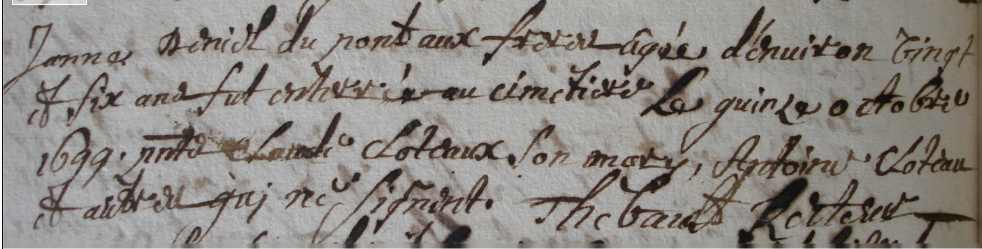 Janne Deniel du pont aux freres agée d'enuiron vingt
et six ans fut enterrée au cimetiere Le quinze octobre
1699. pnts Claude Cloteaux son mary, Antoine Cloteau
et autres qui ne signent. Thebault Recteur